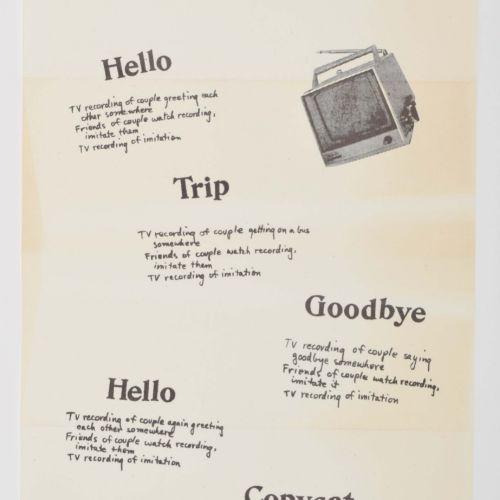 Hello
TV recording of couple greeting each
other somewhere
Friends of couple watch recording,
imitate them
TV recording of imitation
Trip
TV recording of couple getting on a bus
somewhere
Friends of couple watch recording,
imitate them
TV recording of imitation
Goodbye
TV recording of couple saying
goodbye somewhere
Friends of couple watch recording,
imitate it
TV recording of imitation
Hello
TV recording of couple again greeting
each other somewhere
Friends of couple watch recording,
imitate them
TV recording of imitation
Copycat